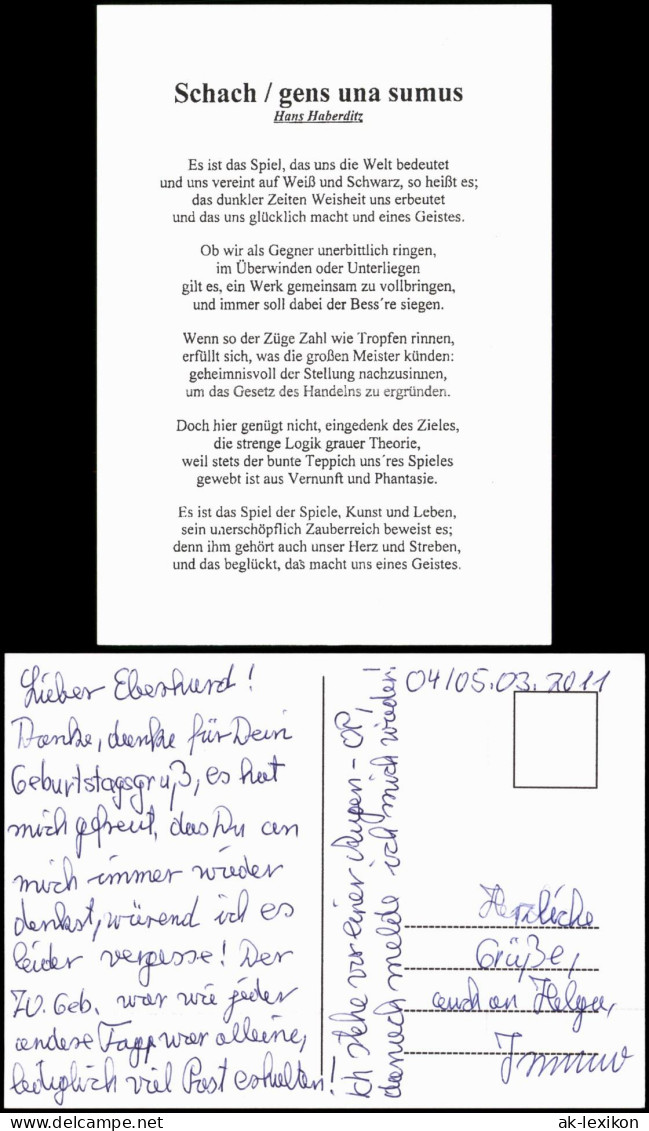 Schach / gens una sumus
Hans Haberditz
Es ist das Spiel, das uns die Welt bedeutet
und uns vereint auf Weiß und Schwarz, so heißt es;
das dunkler Zeiten Weisheit uns erbeutet
und das uns glücklich macht und eines Geistes.
Ob wir als Gegner unerbittlich ringen,
im Überwinden oder Unterliegen
gilt es, ein Werk gemeinsam zu vollbringen,
und immer soll dabei der Bess´re siegen.
Wenn so der Züge Zahl wie Tropfen rinnen,
erfüllt sich, was die großen Meister künden:
geheimnisvoll der Stellung nachzusinnen,
um das Gesetz des Handelns zu ergründen.
Doch hier genügt nicht, eingedenk des Zieles,
die strenge Logik grauer Theorie,
weil stets der bunte Teppich uns´res Spieles
gewebt ist aus Vernunft und Phantasie.
Es ist das Spiel der Spiele, Kunst und Leben,
sein unerschöpflich Zauberreich beweist es;
denn ihm gehört auch unser Herz und Streben,
und das beglückt, das macht uns eines Geistes.
Lieber Eberhard!
Danke, danke für Dein
Geburtstagsgruß, es hat
mich gefreut, das Du an
mich immer wieder
denkst, würend ich es
leider vergesse! Der
70. Geb. war wie jeder
andere Tag, war alleine,
lediglich viel Post erhalten!
Ich stehe vor einer Augen-OP,
danach melde ich mich wieder!
04/05.03.2011
Herzliche
Grüße,
auch an Helga,
ak-lexikon
delcampe.net